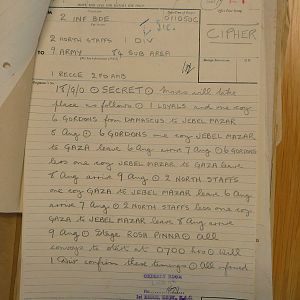 2 INF BDE
011050C
2 NORTH STAFFS 1 DIV
CIPHER
9 ARMY 84 SUB AREA
1 RECCE 2 FD AMB
18/G/0 ⊙ SECRET ⊙ Moves will take
place as follows ⊙ 1 LOYALS and one coy
6 GORDONS from DAMASCUS to JEBEL MAZAR
8 Aug ⊙ 6 GORDONS one coy JEBEL MAZAR
to GAZA leave 6 Aug arrive 7 Aug ⊙ 6 GORDONS
less one coy JEBEL MAZAR to GAZA leave
8 Aug arrive 9 Aug ⊙ 2 NORTH STAFFS
one coy GAZA to JEBEL MAZAR leave 6 Aug
arrive 7 Aug ⊙ 2 NORTH STAFFS less one coy
GAZA to JEBEL MAZAR leave 8 Aug arrive
9 Aug ⊙ Stage ROSH PINNA ⊙ all
convoys to start at 0700 hrs ⊙ Will
1 Div confirm these timings ⊙ All informed
ORDERLY ROOM